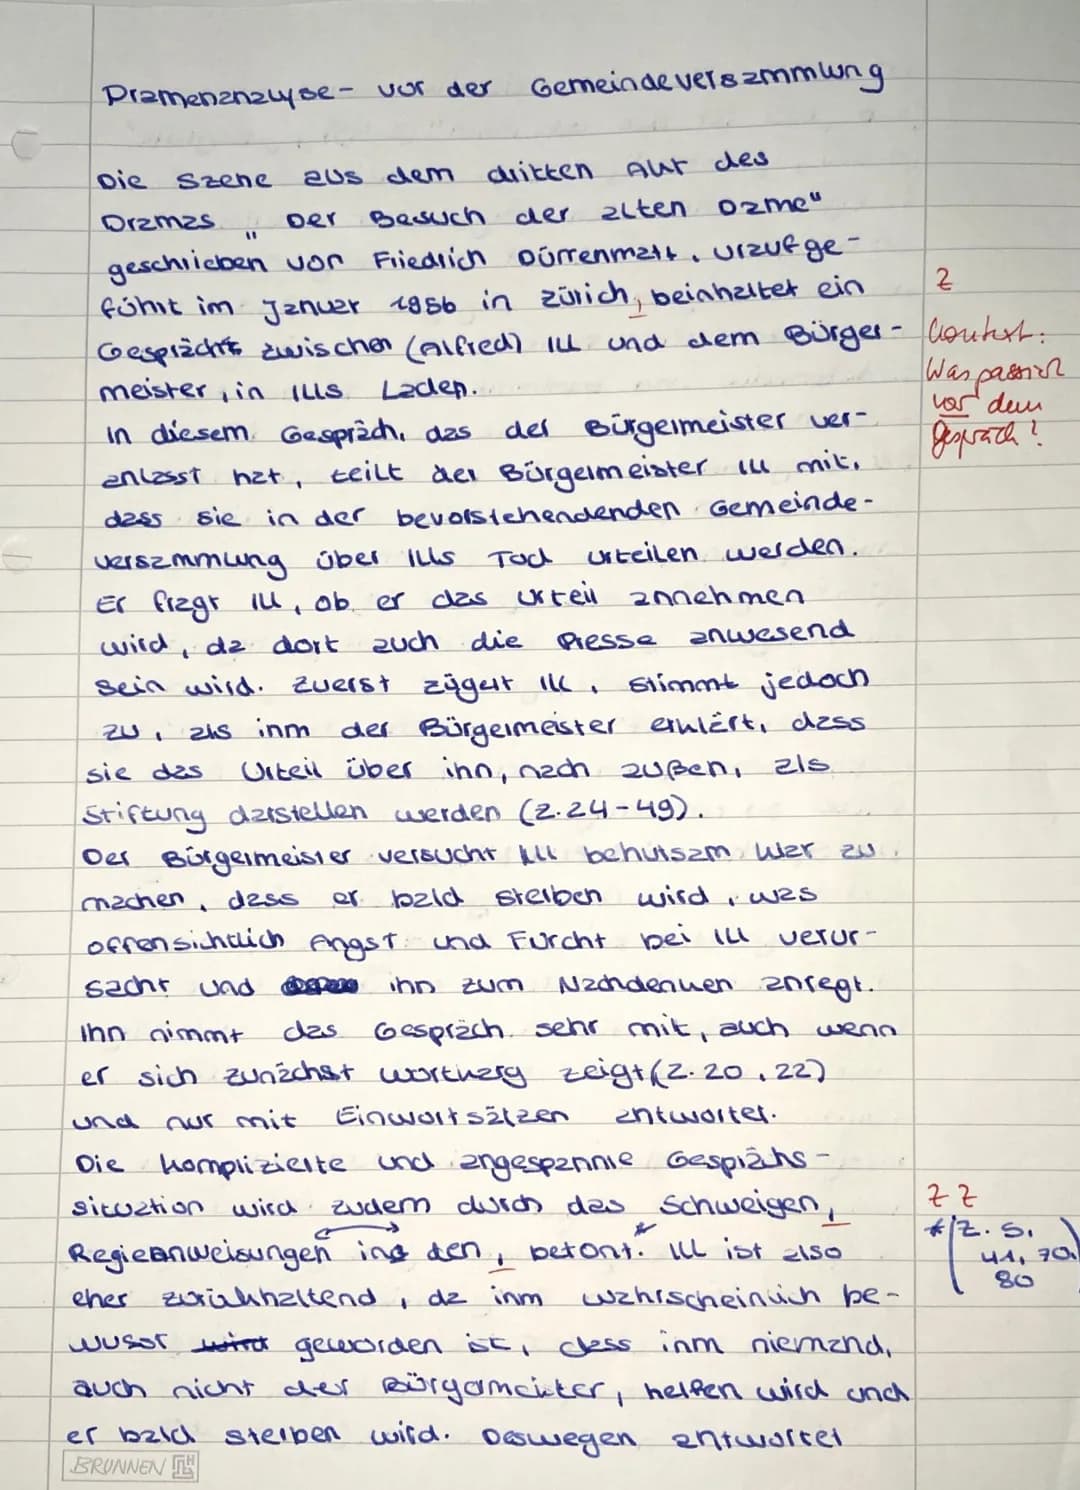 Dramenanalyse - vor der Gemeindeversammlung
Die Szene aus dem dritten Akt des
Dramas „Der Besuch der alten Dame"
geschrieben von Friedrich Dürrenmatt, uraufge-
führt im Januar 1956 in Zürich, beinhaltet ein
Z
Gespräch zwischen (Alfred) Ill und dem Bürger-
Kontext:
meister, in Ills Laden.
Was passiert
vor dem
In diesem Gespräch, das der Bürgermeister ver-
Gespräch?
anlasst hat, teilt der Bürgermeister Ill mit,
dass sie in der bevorstehendenden Gemeinde-
versammung über Ills Tod urteilen werden.
Er fragt Ill, ob er das Urteil annehmen
wird, da dort auch die Presse anwesend
sein wird. Zuerst zügert Ill, stimmt jedoch
zu, als ihm der Bürgermeister erklärt, dass
sie das Urteil über ihn, nach außen, als
Stiftung darstellen werden (Z.24-49).
Der Bürgermeister versucht Ill behutsam klar zu
machen, dass er bald sterben wird, was
offensichtlich Angst und Furcht bei Ill verur-
sacht und ihn zum Nachdenken anregt.
Ihn nimmt das Gespräch sehr mit, auch wenn
er sich zunächst wortkarg zeigt (Z.20,22)
und nur mit Einwortsätzen antwortet.
Die komplizierte und angespannte Gesprächs-
situation wird zudem durch das Schweigen,
Z Z
Regieanweisungen in den, betont. Ill ist also
*(Z.S.
41, 70,
80
eher zurückhaltend, da ihm wahrscheinlich be-
wusst wird geworden ist, dass ihm niemand,
auch nicht der Bürgermeister, helfen wird und
er bald sterben wird. Deswegen antwortet
BRUNNEN